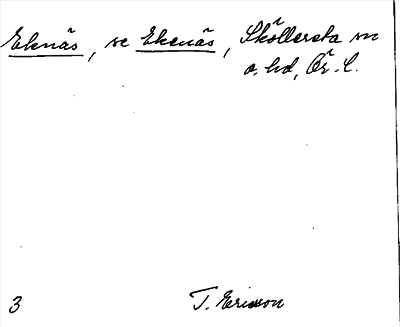 Eknäs, se Ekenäs, Sköllersta sn
o. hd, Ör. l.
3 T. Ericsson